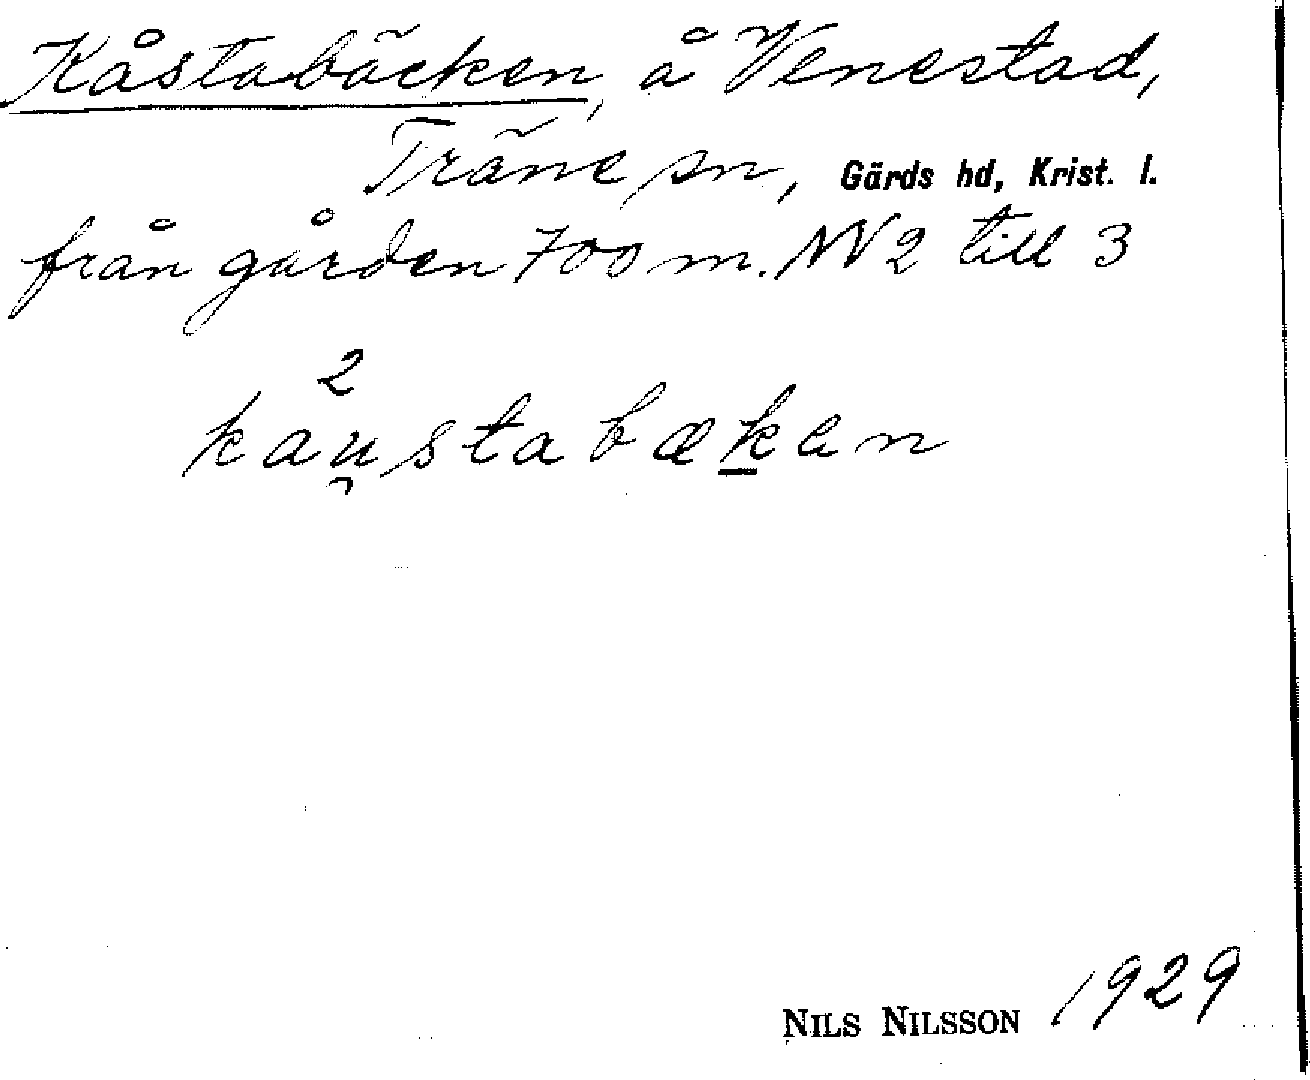 Kåstabäcken, å Venestad,
Träne sn, Gärds hd, Krist. l.
från gården 700 m. NV 2 till 3
2
kau̯stabæḵen
NILS NILSSON 1929